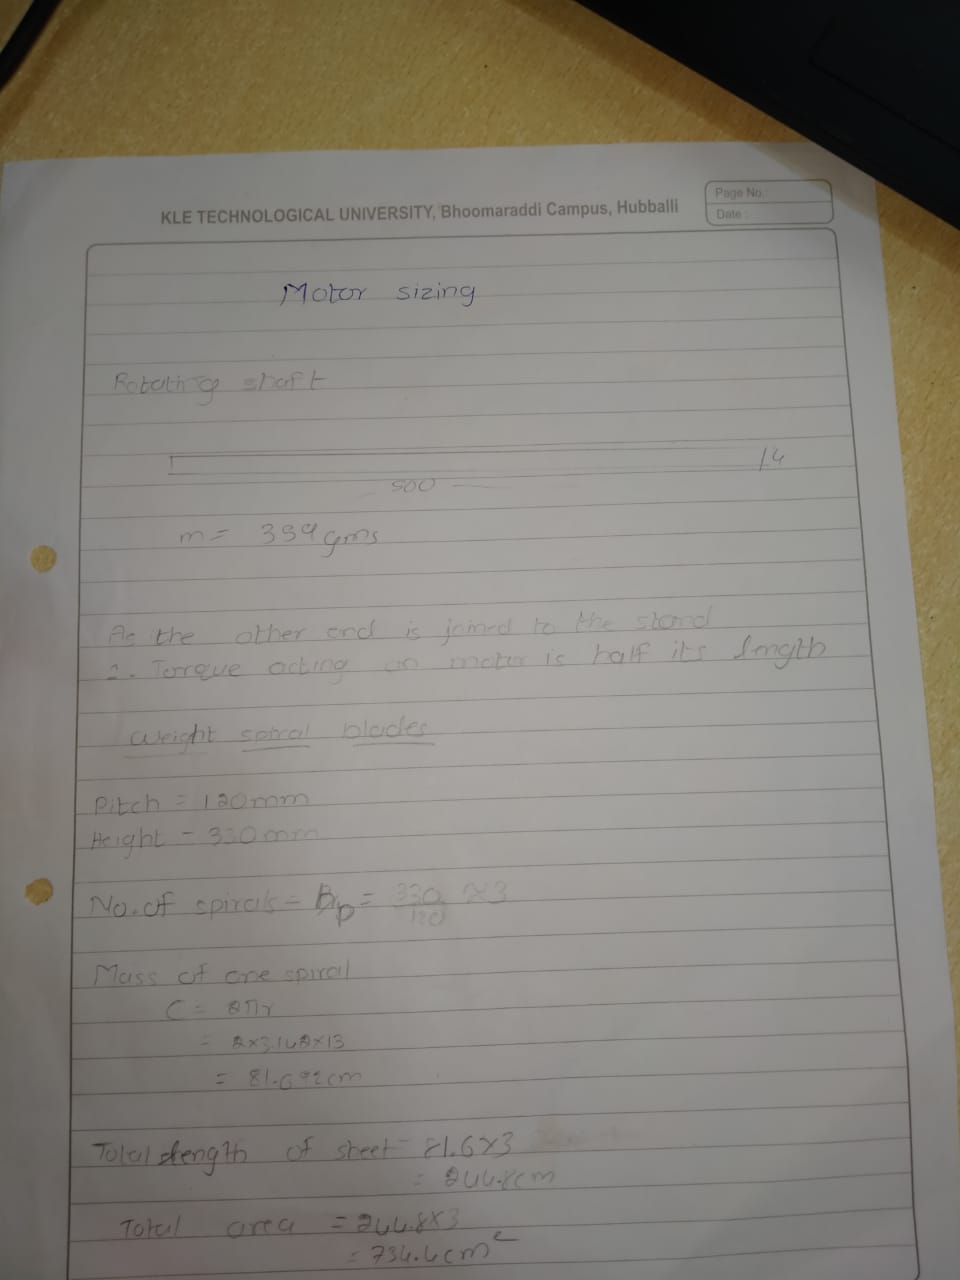 Page No.:
KLE TECHNOLOGICAL UNIVERSITY, Bhoomaraddi Campus, Hubballi
Date :
Motor sizing
Rotating shaft
14
500
m = 339 gms
As the other end is joined to the stand
2. Torque acting on motor is half its length
weight spiral blades
Pitch = 120mm
Height = 330mm
No. of spirals = = 330/120 ≈ 3
Mass of one spiral
C = 2πr
= 2×3.142×13
= 81.692cm
Total length of sheet = 81.6×3
= 244.8cm
Total area = 244.8×3
= 734.4cm²